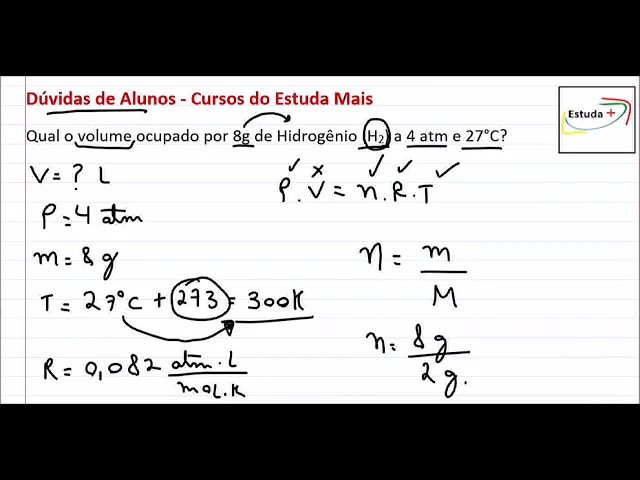 Dúvidas de Alunos - Cursos do Estuda Mais
Estuda +
Qual o volume ocupado por 8g de Hidrogênio (H2) a 4 atm e 27°C?
V = ? L
P . V = n . R . T
P = 4 atm
m = 8 g
n = m / M
T = 27°C + 273 = 300K
n = 8 g / 2 g.
R = 0,082 atm . L / mol . K